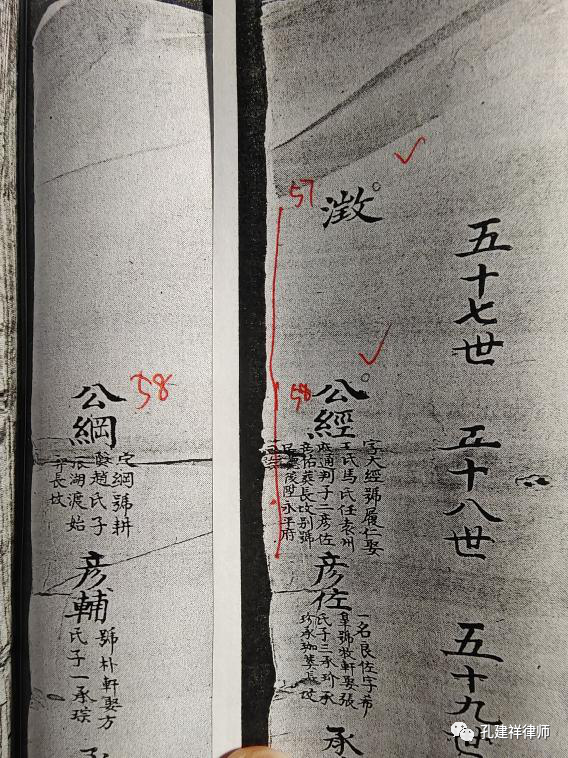 五十七世
五十八世
五十九世
57
澂
58
公經
字大經號履仁娶
王氏馬氏任袁州
通判子二彥佐
彥佑葬長坟别號
陵陞永平府
彥佐
一名良佐字希
阜號牧軒娶張
氏子三承玠承
珍承珈葬長坟
承
58
公綱
綱號耕
娶趙氏子
湖渡始
長坟
彥輔
號朴軒娶方
氏子一承琮
孔建祥律师